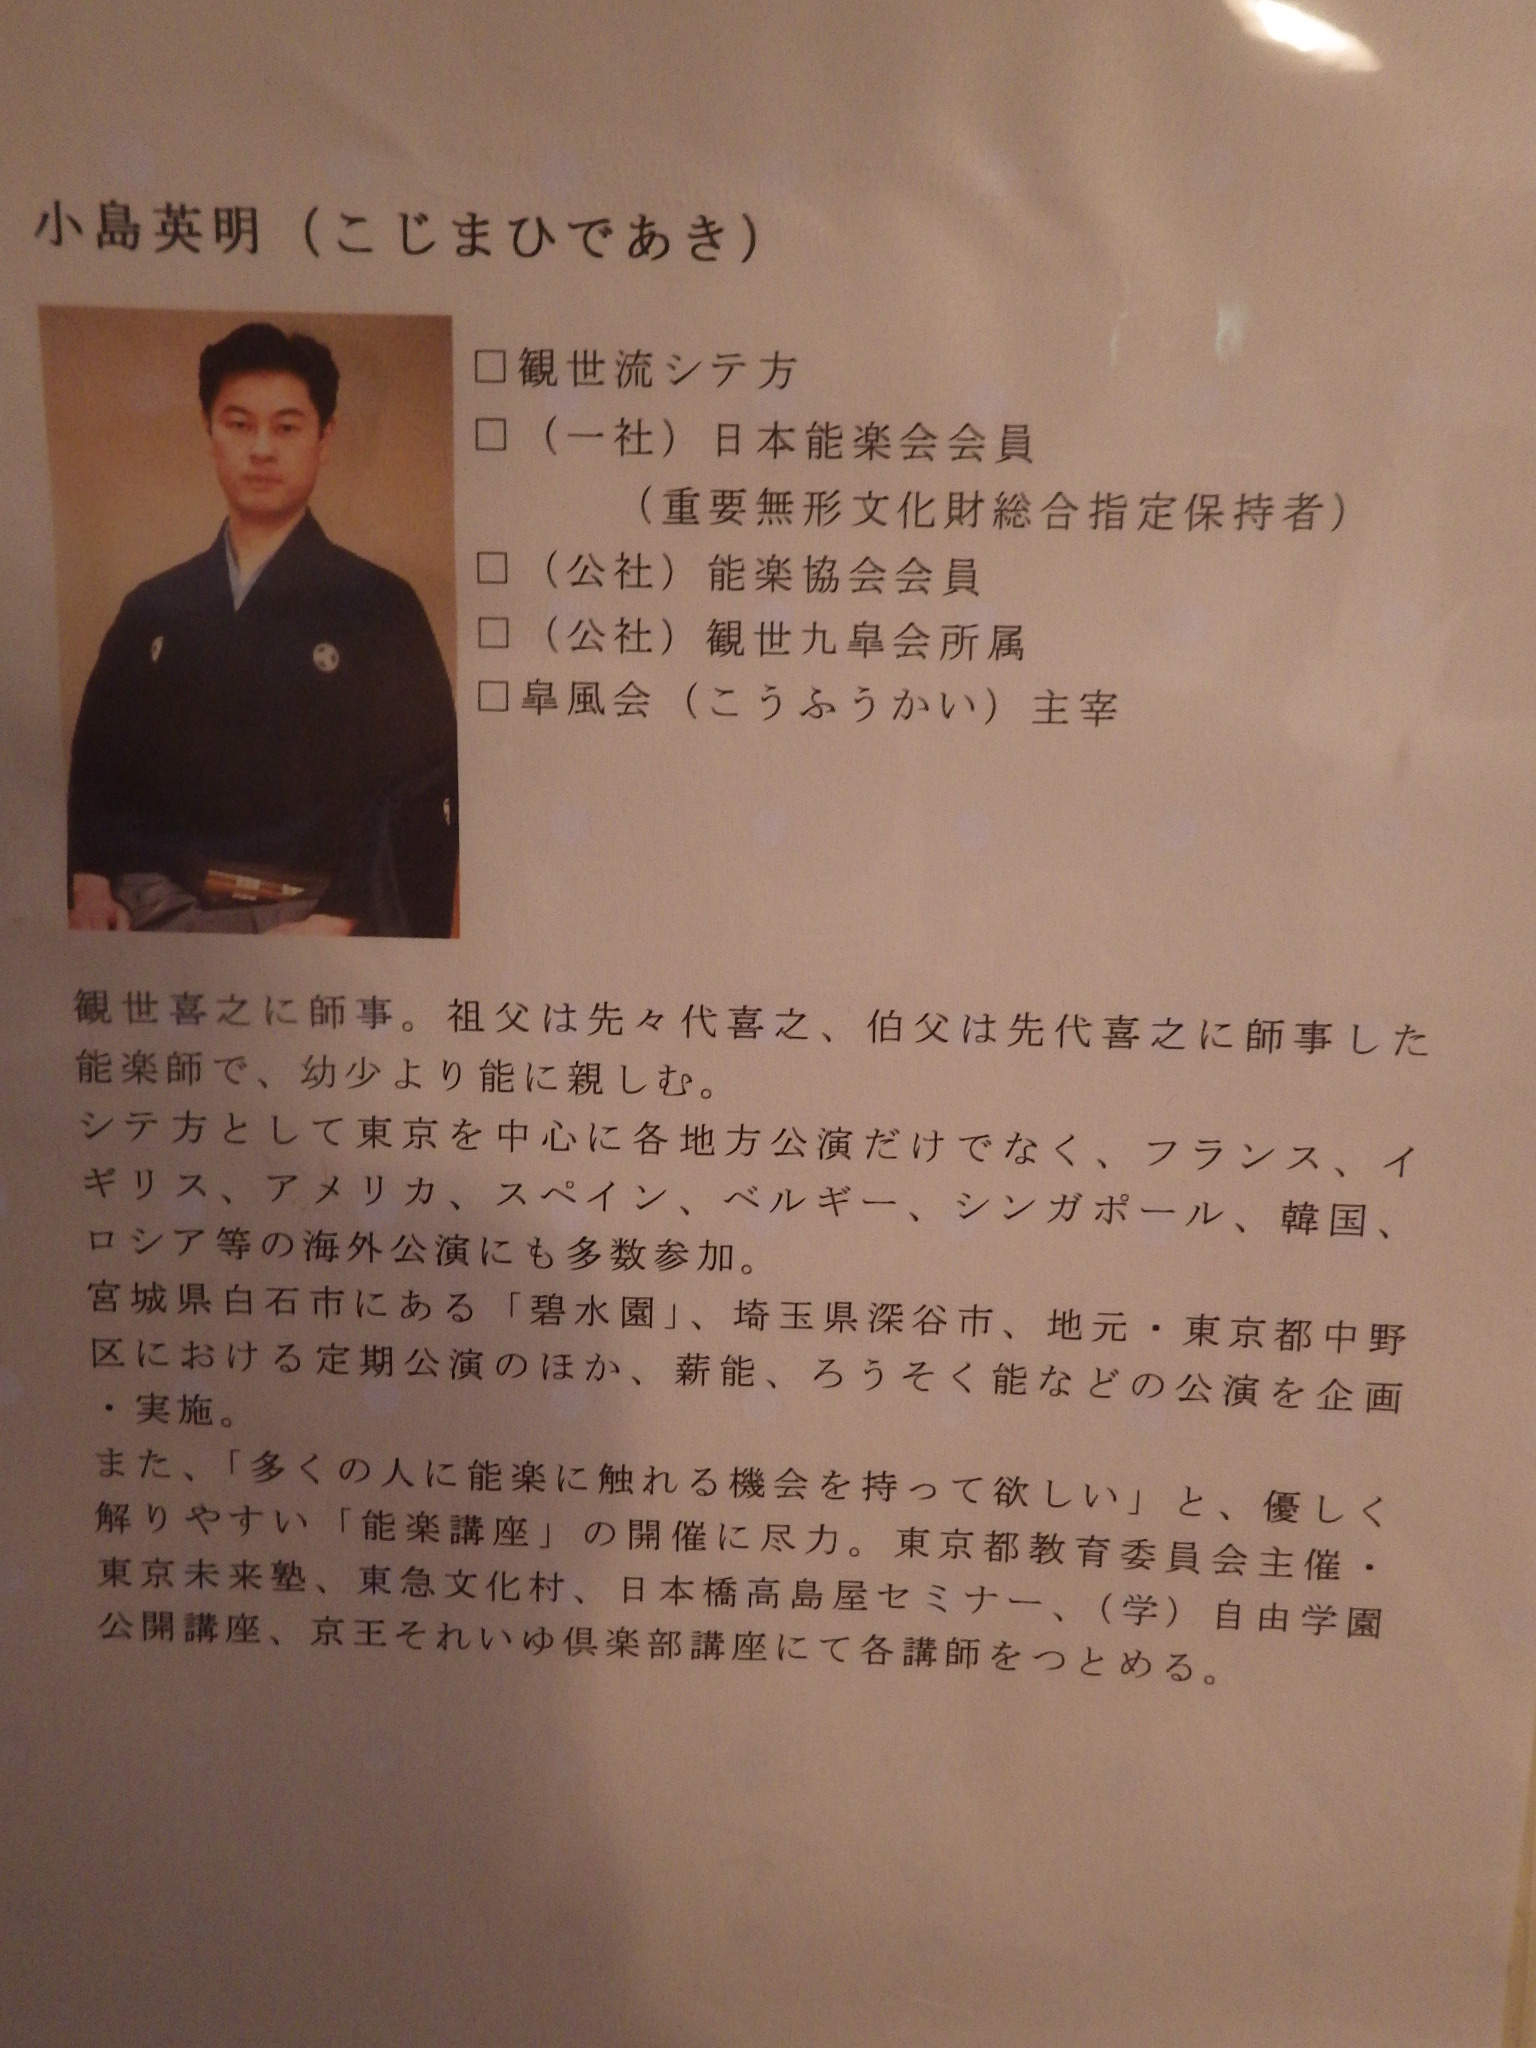 小島英明（こじまひであき）
□観世流シテ方
□（一社）日本能楽会会員
（重要無形文化財総合指定保持者）
□（公社）能楽協会会員
□（公社）観世九皐会所属
□皐風会（こうふうかい）主宰
観世喜之に師事。祖父は先々代喜之、伯父は先代喜之に師事した
能楽師で、幼少より能に親しむ。
シテ方として東京を中心に各地方公演だけでなく、フランス、イ
ギリス、アメリカ、スペイン、ベルギー、シンガポール、韓国、
ロシア等の海外公演にも多数参加。
宮城県白石市にある「碧水園」、埼玉県深谷市、地元・東京都中野
区における定期公演のほか、薪能、ろうそく能などの公演を企画
・実施。
また、「多くの人に能楽に触れる機会を持って欲しい」と、優しく
解りやすい「能楽講座」の開催に尽力。東京都教育委員会主催・
東京未来塾、東急文化村、日本橋高島屋セミナー、（学）自由学園
公開講座、京王それいゆ倶楽部講座にて各講師をつとめる。